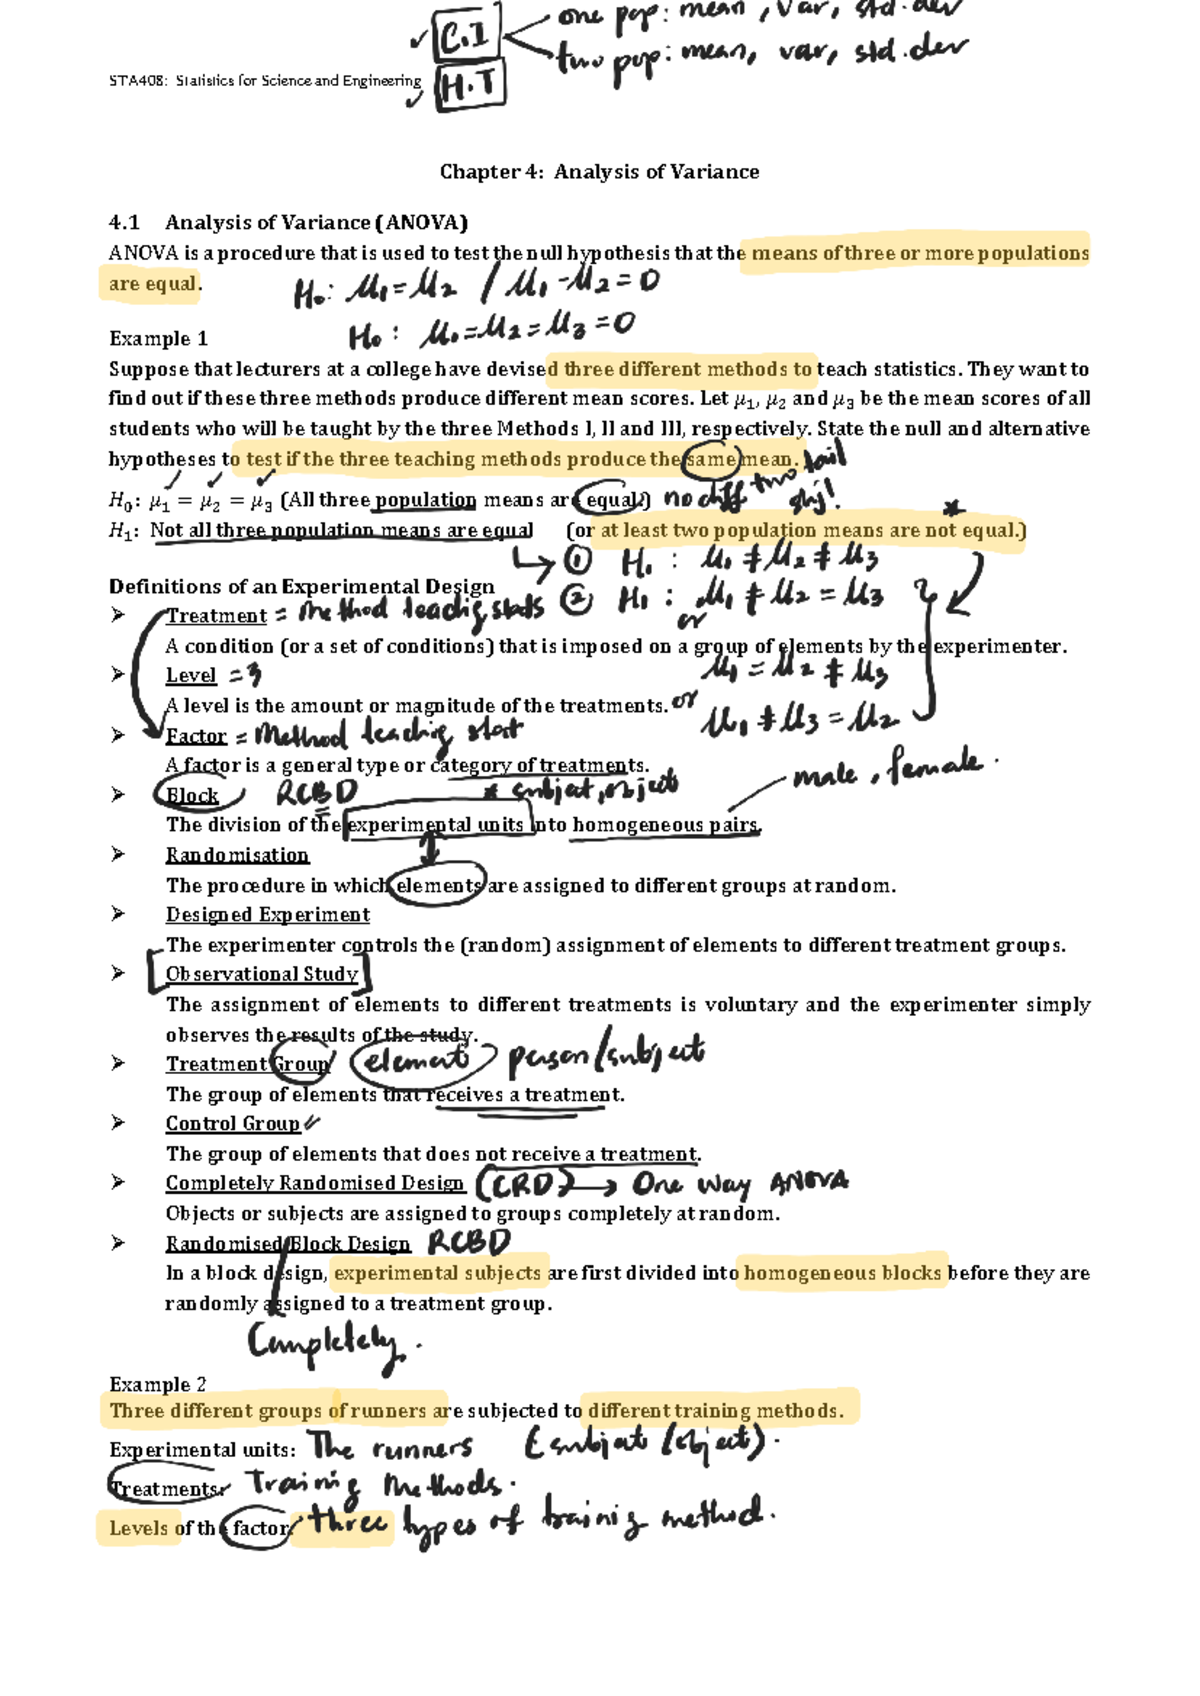 one pop: mean, Var, std.dev
✓ C.I
two pop: mean, var, std.dev
STA408: Statistics for Science and Engineering
✓ H.T
Chapter 4: Analysis of Variance
4.1 Analysis of Variance (ANOVA)
ANOVA is a procedure that is used to test the null hypothesis that the means of three or more populations
are equal.
H₀: μ₁=μ₂ / μ₁-μ₂=0
H₀: μ₁=μ₂=μ₃=0
Example 1
Suppose that lecturers at a college have devised three different methods to teach statistics. They want to
find out if these three methods produce different mean scores. Let μ₁, μ₂ and μ₃ be the mean scores of all
students who will be taught by the three Methods I, II and III, respectively. State the null and alternative
hypotheses to test if the three teaching methods produce the same mean.
H₀: μ₁ = μ₂ = μ₃ (All three population means are equal.) no diff two tail
H₁: Not all three population means are equal (or at least two population means are not equal.)
→ ① H₁ : μ₁ ≠ μ₂ ≠ μ₃
Definitions of an Experimental Design
② H₁ : μ₁ ≠ μ₂ = μ₃
➢ Treatment = method teaching stats
or
A condition (or a set of conditions) that is imposed on a group of elements by the experimenter.
μ₁ = μ₂ ≠ μ₃
➢ Level = 3
A level is the amount or magnitude of the treatments.
or μ₁ ≠ μ₃ = μ₂
➢ Factor = Method teaching stat
A factor is a general type or category of treatments.
male, female.
➢ Block RCBD * subject, object
The division of the experimental units into homogeneous pairs.
➢ Randomisation
The procedure in which elements are assigned to different groups at random.
➢ Designed Experiment
The experimenter controls the (random) assignment of elements to different treatment groups.
➢ [Observational Study]
The assignment of elements to different treatments is voluntary and the experimenter simply
observes the results of the study.
➢ Treatment Group element person/subject
The group of elements that receives a treatment.
➢ Control Group
The group of elements that does not receive a treatment.
➢ Completely Randomised Design (CRD) → One Way ANOVA
Objects or subjects are assigned to groups completely at random.
➢ Randomised Block Design RCBD
In a block design, experimental subjects are first divided into homogeneous blocks before they are
randomly assigned to a treatment group.
Completely.
Example 2
Three different groups of runners are subjected to different training methods.
Experimental units: The runners (subject/object).
Treatments: Training Methods.
Levels of the factor: three types of training method.